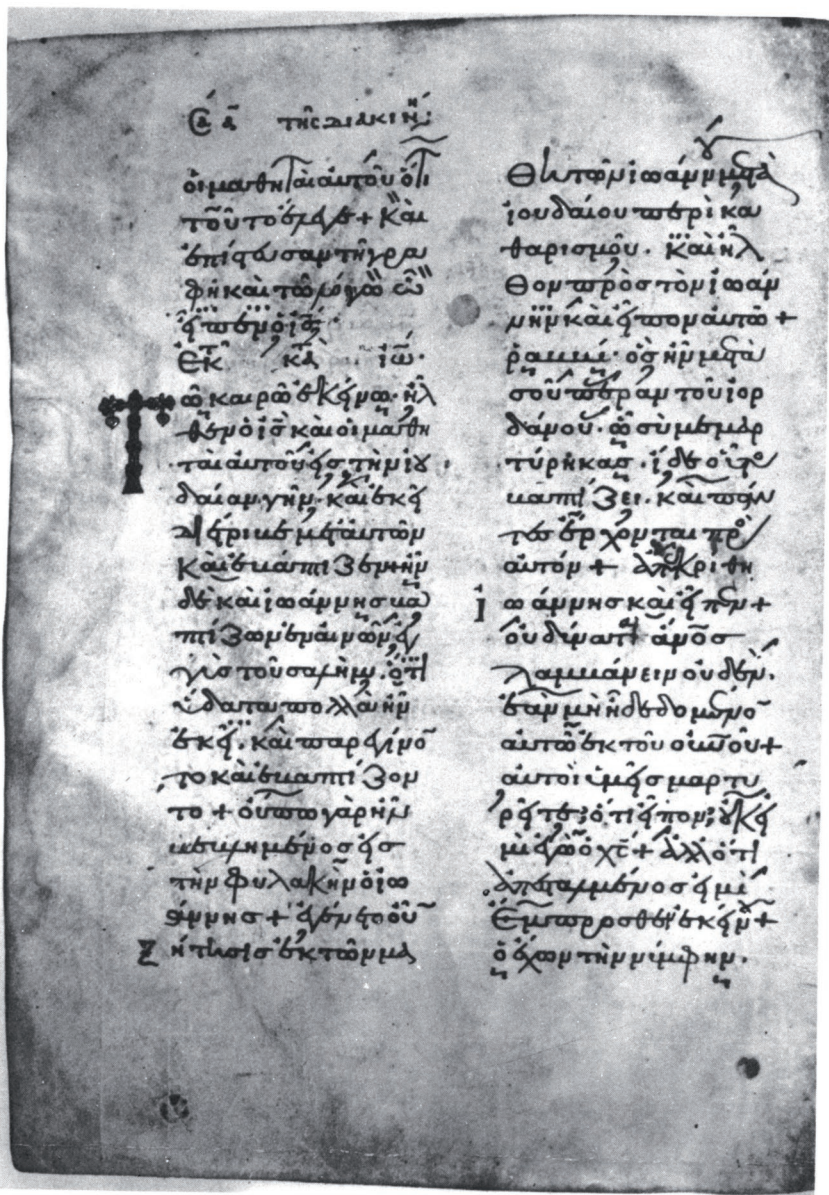 τῆς διακινη:
οἱ μαθηταὶ αὐτοῦ ὅτι
τοῦτο ἔλεγε + Καὶ
ἐπίστευσαν τῆ γρα
φῆ καὶ τῶ λόγω ὧ
εἶπεν ὁ ις·
Ἐκ τ κα ἰω·
Τῶ καιρῶ ἐκείνω· ἦλ
θεν ὁ ις καὶ οἱ μαθη
ταὶ αὐτοῦ εἰς τὴν ἰου
δαίαν γῆν· καὶ ἐκεῖ
διέτριβε μετ αὐτῶν
καὶ ἐβάπτιζεν + ἦν
δὲ καὶ ἰωάννης βα
πτίζων ἐν αἰνῶν ἐγ
γὺς τοῦ σαλήμ· ὅτι
ὕδατα πολλὰ ἦν
ἐκεῖ· καὶ παρεγίνον
το καὶ ἐβαπτίζον
το + οὔπω γὰρ ἦν
βεβλημένος εἰς
τὴν φυλακὴν ὁ ἰω
άννης + ἐγένετο οὖν
ζήτησις ἐκ τῶν μα
θητῶν ἰωάννου μετὰ
ἰουδαίου περὶ κα
θαρισμοῦ· Καὶ ἦλ
θον πρὸς τὸν ἰωάν
νην καὶ εἶπον αὐτῶ +
ῥαββί· ὃς ἦν μετὰ
σοῦ πέραν τοῦ ἰορ
δάνου· ὧ σὺ μεμαρ
τύρηκας· ἴδε οὗτος
βαπτίζει· καὶ πάν
τες ἔρχονται πρὸς
αὐτόν + ἀπεκρίθη
ἰωάννης καὶ εἶπεν +
οὐ δύναται ἄνος
λαμβάνειν οὐδέν·
ἐὰν μὴ ἦ δεδομένον
αὐτῶ ἐκ τοῦ οὐνοῦ +
αὐτοὶ ὑμεῖς μαρτυ
ρεῖτε; ὅτι εἶπον; οὐκ εἰ
μὶ ἐγὼ ὁ χς + ἀλλ ὅτι
ἀπεσταλμένος εἰμὶ
ἔμπροσθεν ἐκείνου +
ὁ ἔχων τὴν νύμφην·